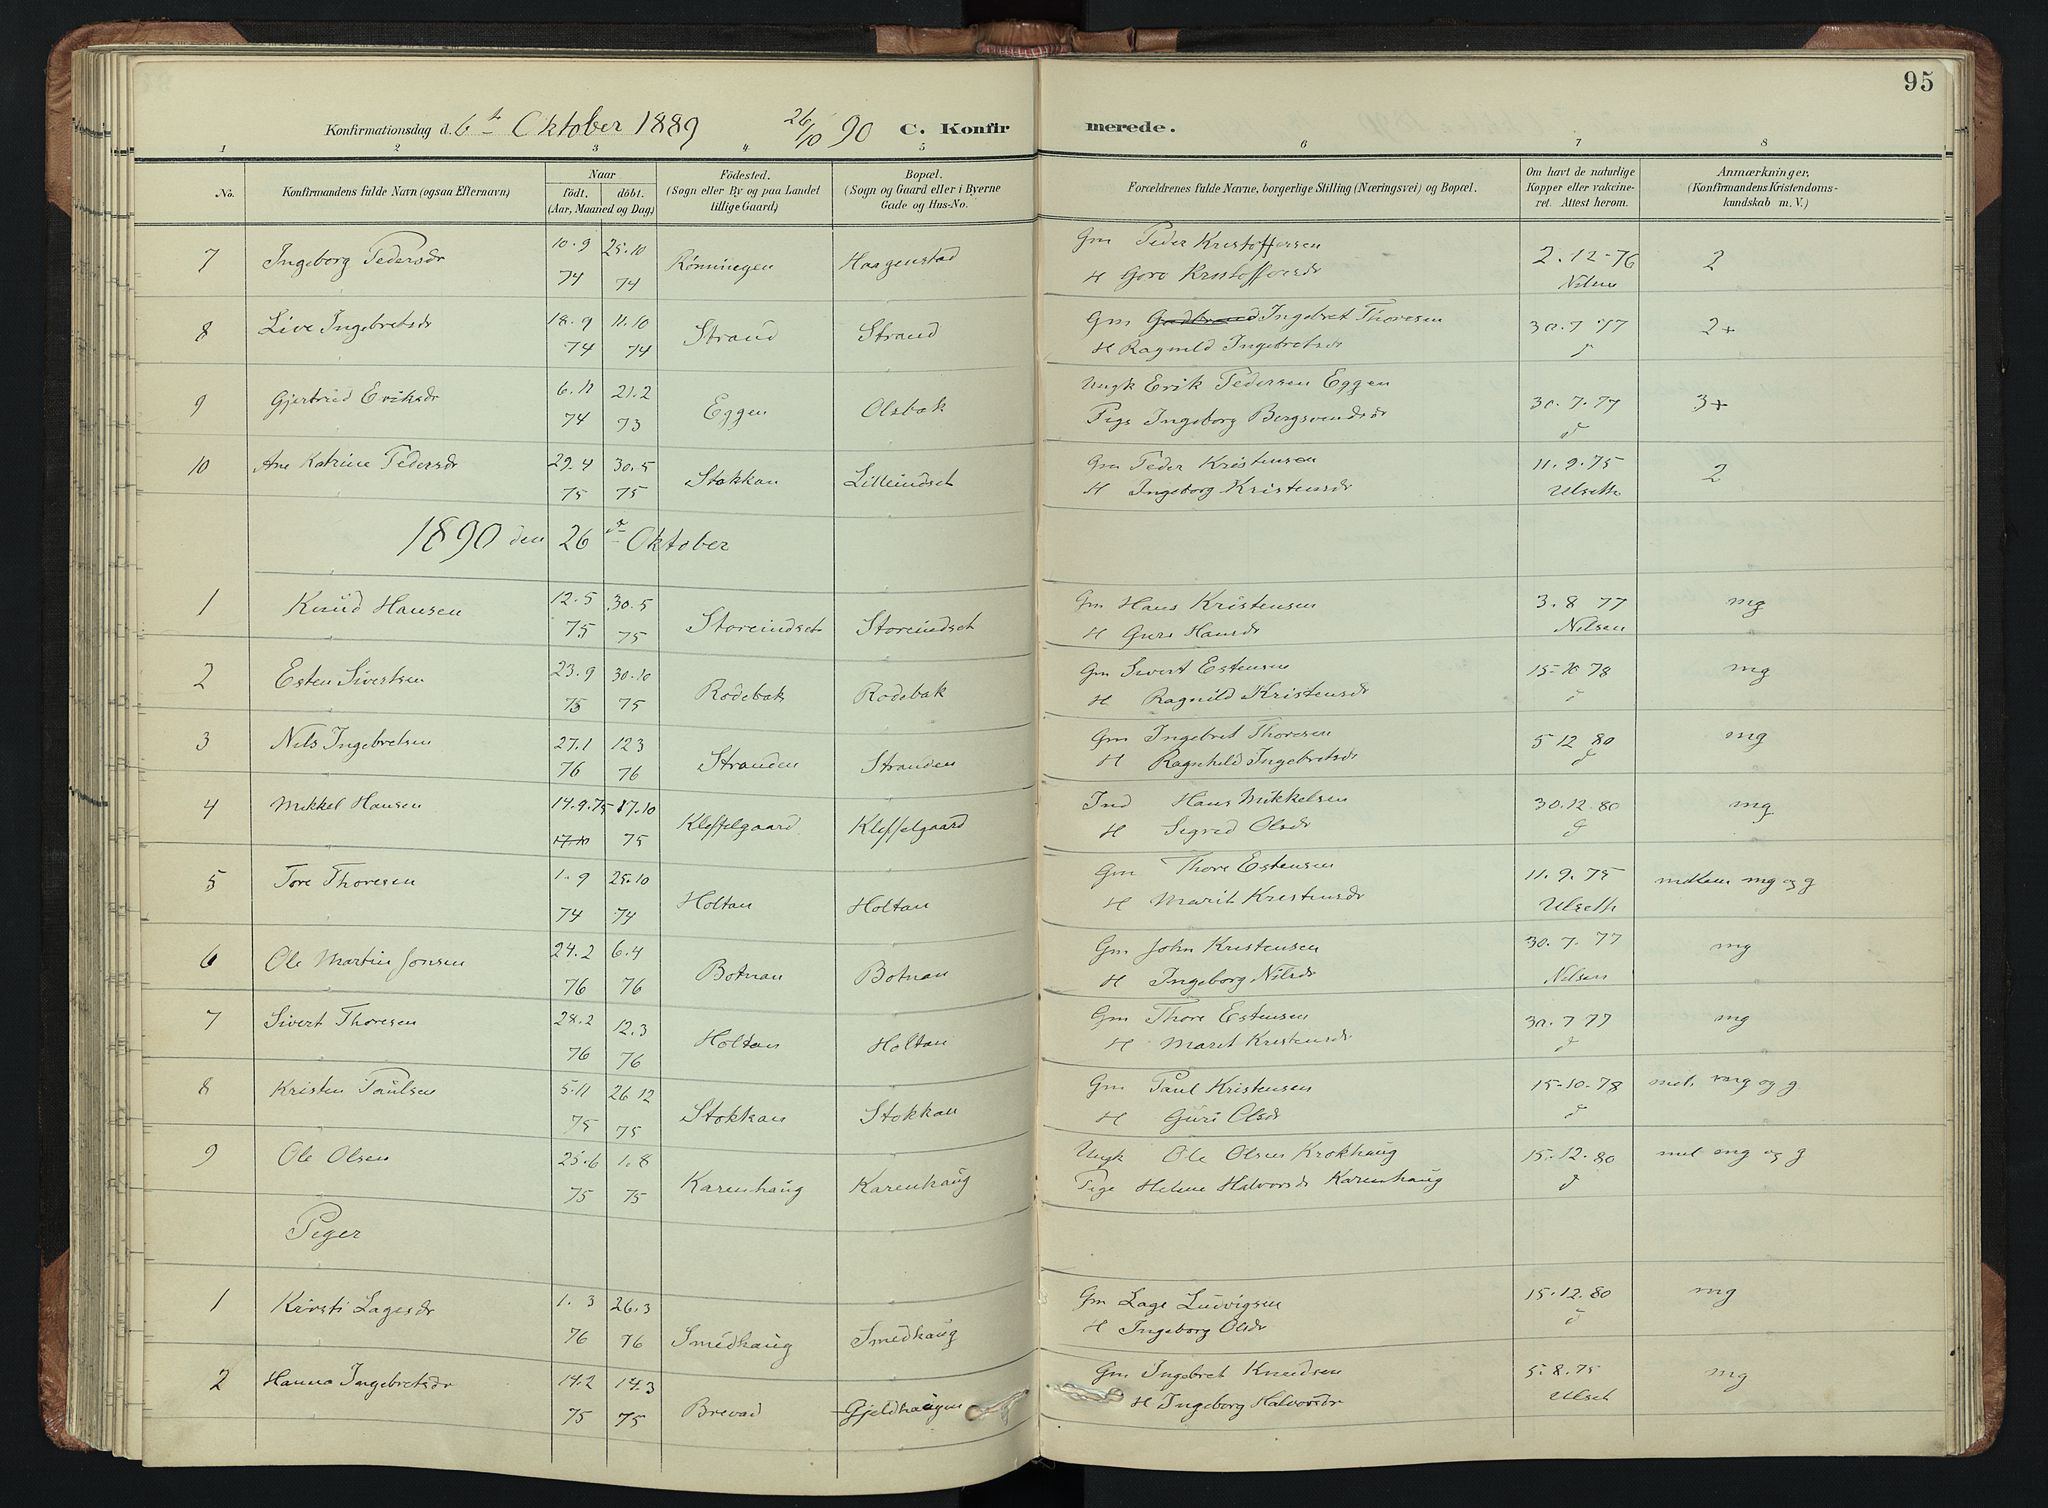 95
Konfirmationsdag d. 6te Oktober 1889 26/10 90 C. Konfirmerede.
1 2 3 4 5 6 7 8
No. Konfirmandens fulde Navn (ogsaa Efternavn) Naar födt. döbt. (Aar, Maaned og Dag.) Födested. (Sogn eller By og paa Landet tillige Gaard.) Bopæl. (Sogn og Gaard eller i Byerne Gade og Hus-No. Forældrenes fulde Navne, borgerlige Stilling (Næringsvei) og Bopæl. Om havt de naturlige Kopper eller vakcineret. Attest herom. Anmærkninger, (Konfirmandens Kristendomskundskab m. V.)
7 Ingeborg Pedersdr 10.9 74 25.10 74 Rönningen Haagenstad Gm Peder Kristoffersen 2.12-76 2
H Goro Kristoffersdr Nilsen
8 Live Ingebretsdr 18.9 74 11.10 74 Strand Strand Gm Ingebret Thoresen 30.7 77 2+
H Ragnild Ingebretsdr d
9 Gjertrud Eriksdr 6.11 74 21.2 73 Eggen Olsbak Ungk Erik Pedersen Eggen 30.7.77 3+
Pige Ingeborg Bergsvendsdr d
10 Ane Katrine Pedersdr 29.4 75 30.5 75 Stokkan Lilleindset Gm Peder Kristensen 11.9.75 2
H Ingeborg Kristensdr Ulseth
1890 den 26de Oktober
1 Knud Hansen 12.5 75 30.5 75 Storeindset Storeindset Gm Hans Kristensen 3.8 77 mg
H Guri Hansdr Nilsen
2 Esten Sivertsen 23.9 75 30.10 75 Rodebak Rodebak Gm Sivert Estensen 15-10 78 mg
H Ragnild Kristensdr d
3 Nils Ingebretsen 27.1 76 12 3 76 Stranden Stranden Gm Ingebret Thoresen 5 12 80 mg
H Ragnhild Ingebretsdr d
4 Mikkel Hansen 14.9.75 17.10 75 Kleffelgaard Kleffelgaard Ind Hans Mikkelsen 30.12.80 mg
H Sigrid Olsdr d
5 Tore Thoresen 1.9 74 25.10 74 Holtan Holtan Gm Thore Estensen 11.9.75 mellem mg og g
H Marit Kristensdr Ulseth
6 Ole Martin Jonsen 24.2 76 6.4 76 Botnan Botnan Gm John Kristensen 30.7.77 mg
H Ingeborg Nilsdr Nilsen
7 Sivert Thoresen 28.2 76 12.3 76 Holtan Holtan Gm Thore Estensen 30.7 77 mg
H Marit Kristensdr d
8 Kristen Paulsen 5.11 75 26 12 75 Stokkan Stokkan Gm Paul Kristensen 15-10-78 mel. mg og g
H Guri Olsdr d
9 Ole Olsen 25.6 75 1.8 75 Karenhaug Karenhaug Ungk Ole Olsen Krokhaug 15.12.80 mel mg og g
Pige Helene Halvorsdr Karenhaug d
Piger
1 Kirsti Lagesdr 1.3 76 26.3 76 Smedhaug Smedhaug Gm Lage Ludvigsen 15.12.80 mg
H Ingeborg Olsdr d
2 Hanna Ingebretsdr 14.2 75 14.3 75 Brevad Gjeldhaugen Gm Ingebret Knudsen 5.8.75 mg
H Ingeborg Halvorsdr Ulset